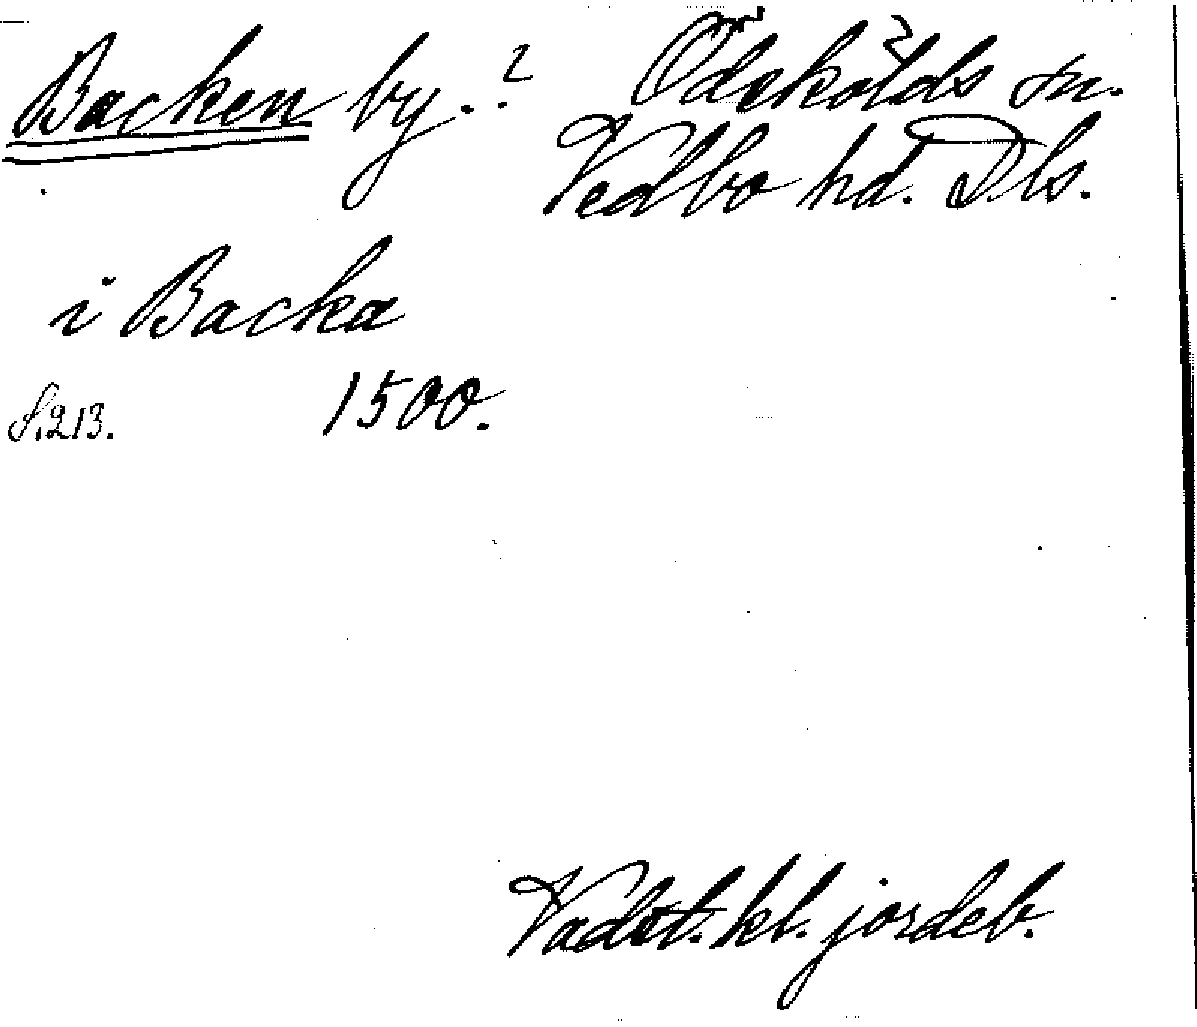 Backen by.? Ödskölds sn.
Vedbo hd. Dls.
i Backa
1500.
S. 213.
Vadst. kl. jordeb.